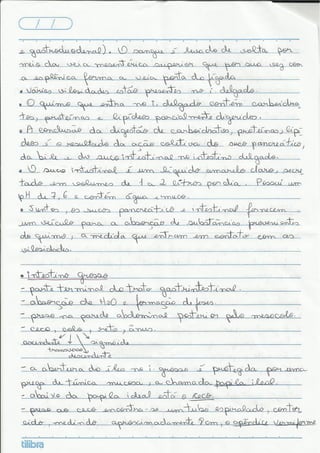 e gastroduodenal). O sangue é levado de volta por
meio da veia mesentérica superior que por sua vez com
a esplênica forma a veia porta do fígado.
• Várias vilosidades estão presentes no i. delgado.
• O quimo que entra no i. delgado contém carboidra
tos, proteínas e lipídeos parcialmente digeridos.
• A conclusão da digestão de carboidratos, proteínas, lipí
deos é o resultado da ação coletiva do suco pancreático,
da bile e do suco intestinal no intestino delgado.
• O suco intestinal é um líquido amarelo claro, secre
tado em volumes de 1 a 2 litros por dia. Possui um
pH de 7,6 e contém água e muco.
• Juntos, os sucos pancreático e intestinal fornecem
um veículo para a absorção de substâncias provenientes
do quimo, a medida que entram em contato com as
vilosidades.
• Intestino Grosso
- parte terminal do trato gastrintestinal.
- absorção de H2O e formação de fezes.
- preso na parede abdominal posterior pelo mesocolo.
- ceco, colo, reto, ânus.
ascendente sigmoide
transverso
descendente
- a abertura do íleo no i. grosso é protegida por uma
prega de túnica mucosa, a chamada papila ileal.
- abaixo da papila ileal está o ceco.
- preso ao ceco encontra-se um tubo espiralado, contor
cido, medindo aproximadamente 8cm, o apêndice vermiforme
tilibra